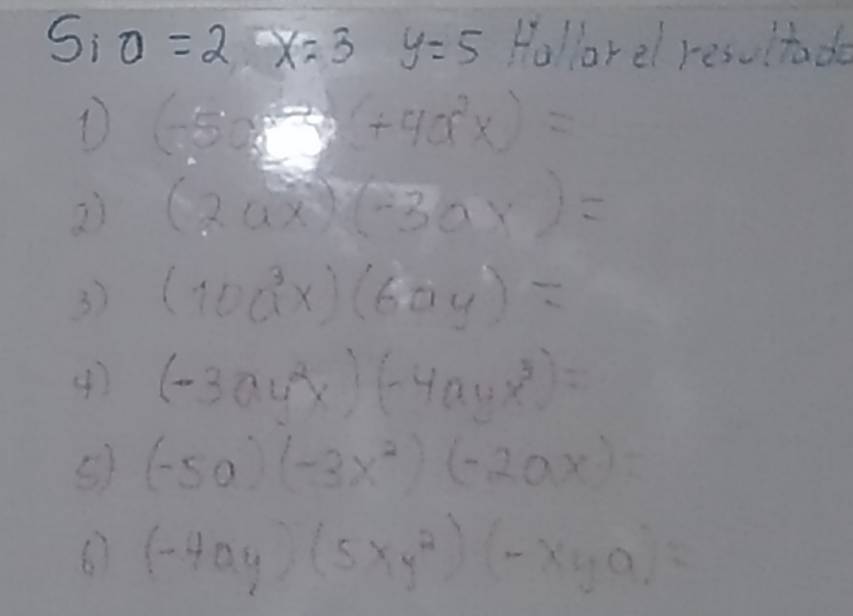 Si a = 2 x = 3 y = 5 Hallar el resultado
1) (-5a (+4a²x) =
2) (2ax)(-3ax) =
3) (10a³x)(6ay) =
4) (-3ay²x)(-4ayx³) =
5) (-5a)(-3x²)(-2ax) =
6) (-4ay)(5xy²)(-xya) =